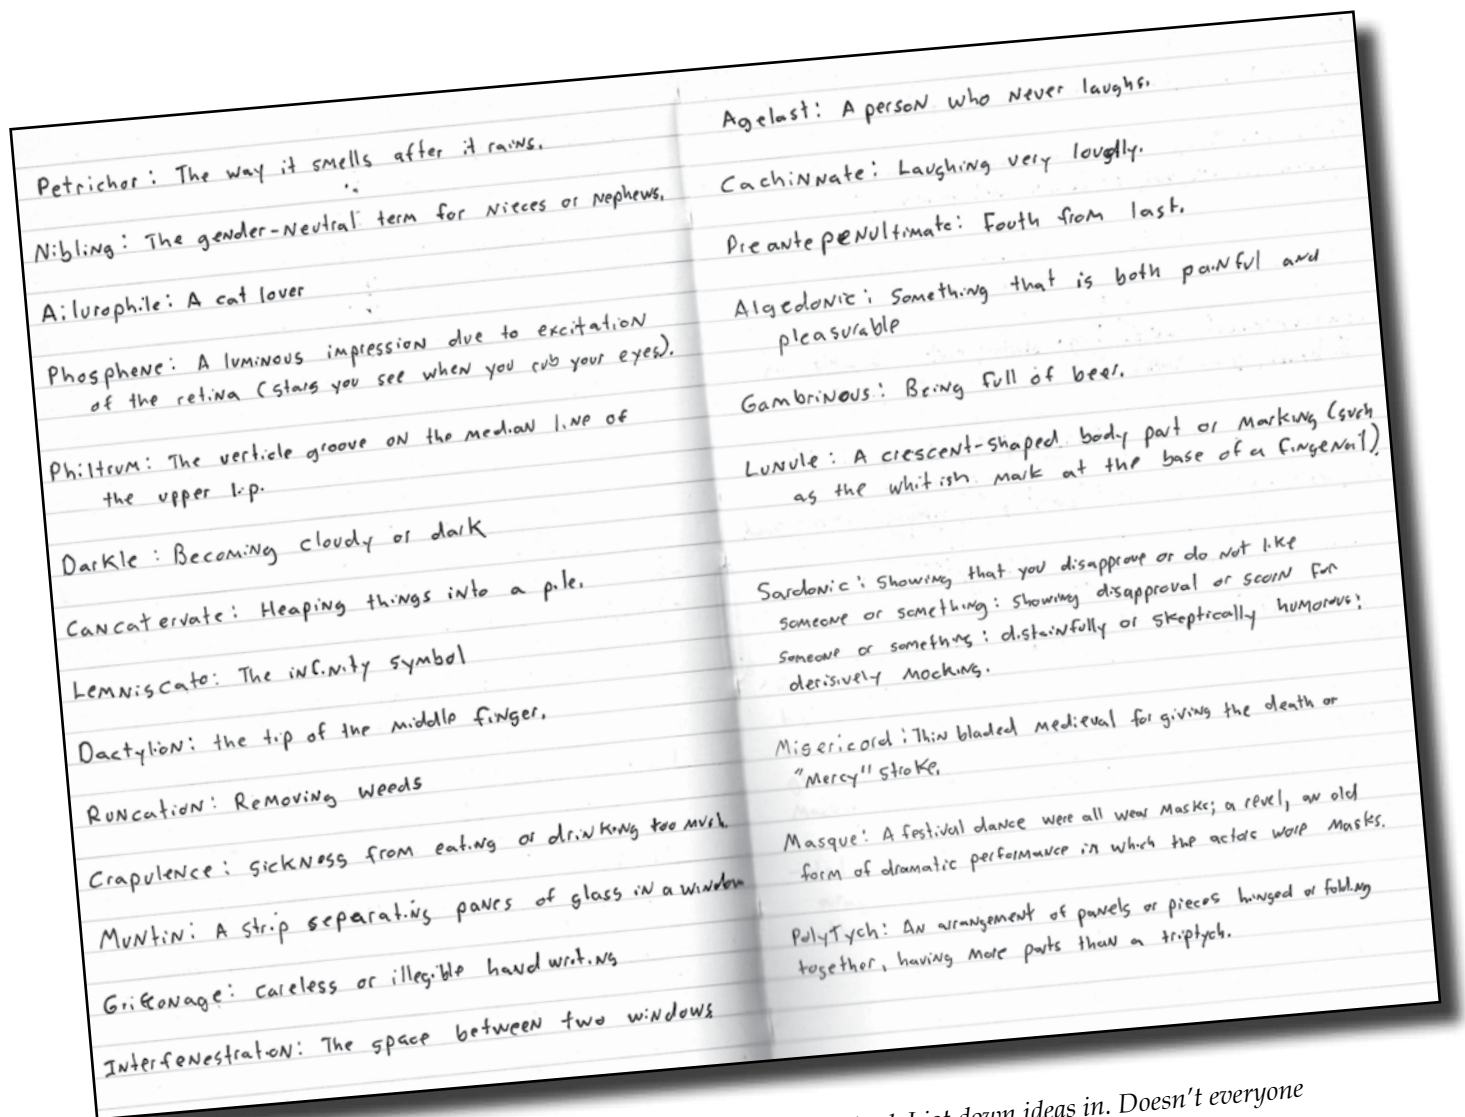 Petrichor: The way it smells after it rains.
Nibling: The gender-Neutral term for Nieces or Nephews.
Ailurophile: A cat lover
Phosphene: A luminous impression due to excitation
of the retina (stars you see when you rub your eyes).
Philtrum: The verticle groove on the median line of
the upper lip.
Darkle: Becoming cloudy or dark
Cancatervate: Heaping things into a pile.
Lemniscate: The infinity symbol
Dactylion: the tip of the middle finger.
Runcation: Removing weeds
Crapulence: sickness from eating or drinking too much.
Muntin: A strip separating panes of glass in a window
Griffonage: careless or illegible handwriting
Interfenestration: The space between two windows
Agelast: A person who never laughs.
Cachinnate: Laughing very loudly.
Preantepenultimate: Fouth from last.
Algedonic: Something that is both painful and
pleasurable
Gambrinous: Being full of beer.
Lunule: A crescent-shaped body part or marking (such
as the whitish mark at the base of a fingenail).
Sardonic: Showing that you disapprove or do not like
someone or something: showing disapproval or scorn for
someone or something: distainfully or skeptically humorous:
derisively mocking.
Misericord: Thin bladed medieval for giving the death or
"Mercy" stroke.
Masque: A festival dance were all wear masks; a revel, an old
form of dramatic performance in which the actors wore masks.
PolyTych: An arrangement of panels or pieces hinged or folding
together, having more parts than a triptych.
I jot down ideas in. Doesn't everyone